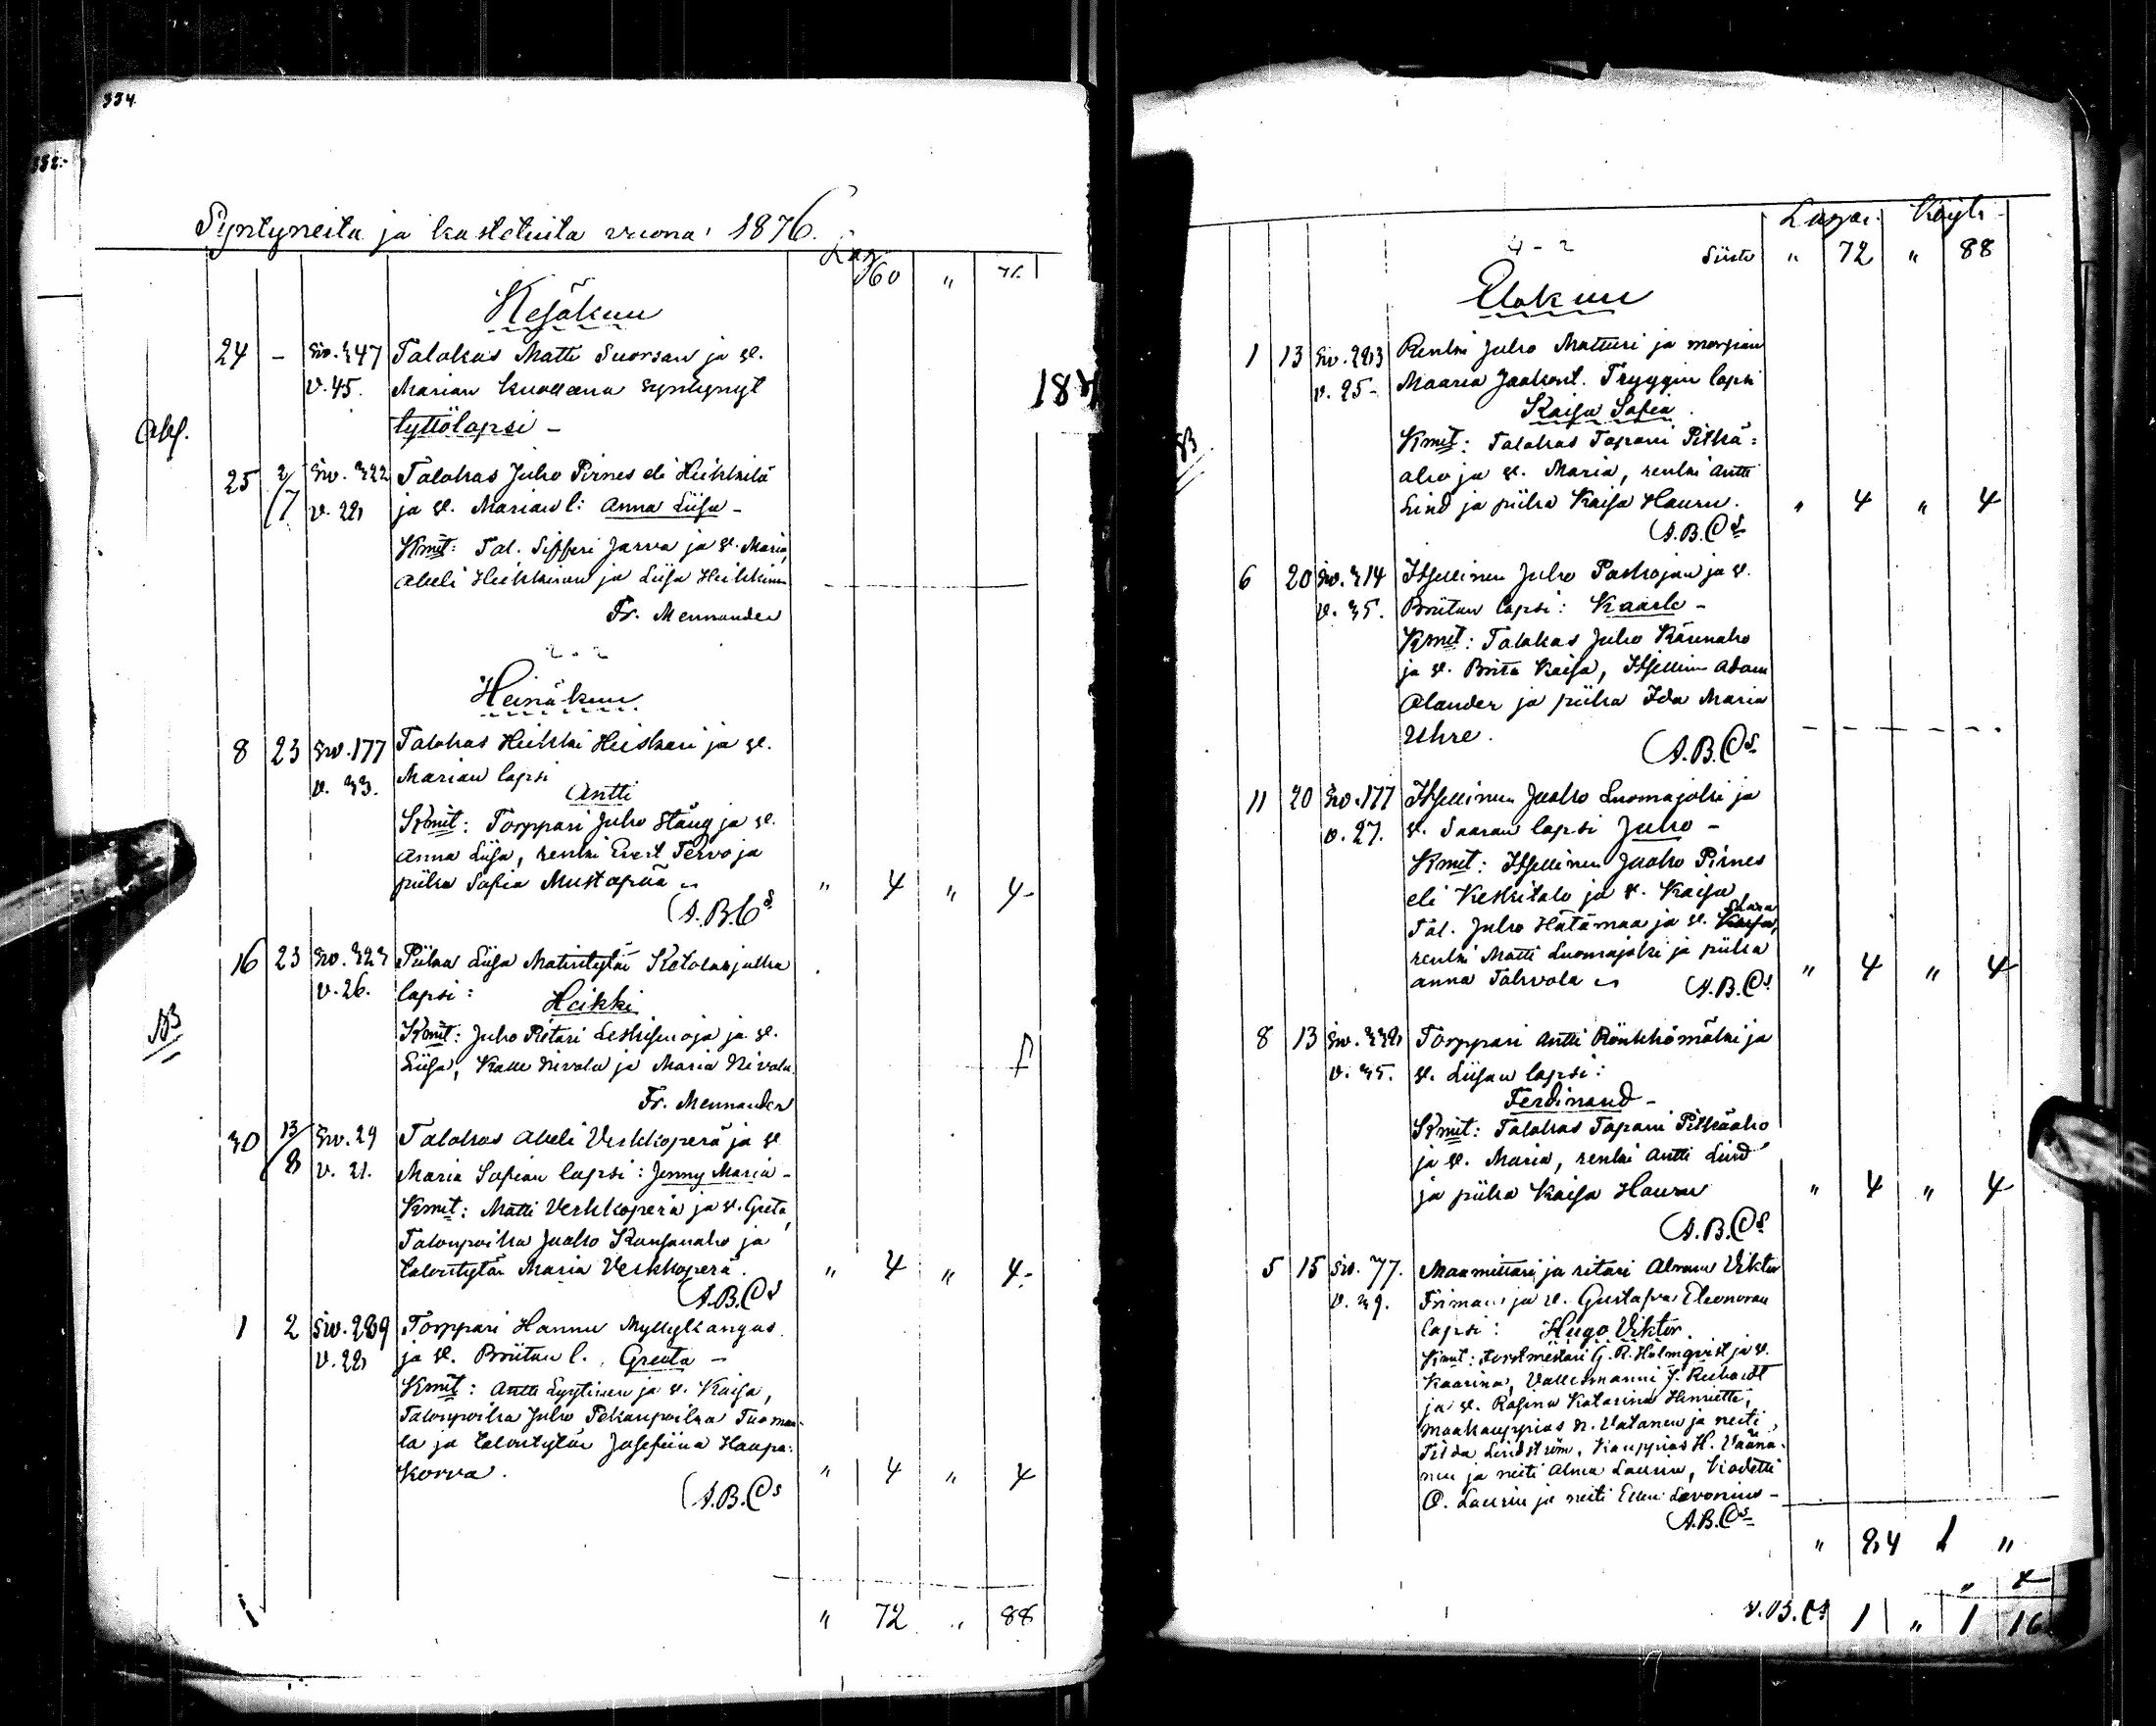 334.
332.
Syntyneitä ja kastetuita vuona 1876.
60 "
Kesäkuu
24 - Siv. 347 Talokas Matti Suorsan ja v.
v. 45. Marian kuollena syntynyt
tyttölapsi -
187
25 2/7 Siv. 322 Talokas Juho Pirnes eli Heikkilä
v. 28 ja v. Marian l: Anna Liisa -
Kmit: Tal. Sifferi Jarva ja v. Maria,
Abeli Heikkinen ja Liisa Heikkinen
Fr. Mennander
Heinäkuu
8 23 Siv. 177 Talokas Heikki Heiskari ja v.
v. 33. Marian lapsi
Antti
Kmit: Torppari Juho Stång ja v.
Anna Liisa, renki Evert Tervo ja
piika Sofia Mustapää " 4 " 4 -
A.B.Cs
16 23 Siv. 323 Piikan Liisa Matintytär
v. 26. lapsi: Heikki
Kmit: Juho Pietari Leskisenoja ja v.
Liisa, Kalle Nivala ja Maria Nivala.
Fr. Mennander
30 13/8 Siv. 29 Talokas Abeli Verkkoperä ja v.
v. 21. Maria Sofian lapsi: Jenny Maria -
Kmit: Matti Verkkoperä ja v. Greta,
Talonpoika Jaako Kansanaho ja
talontytär Maria Verkkoperä. " 4 " 4 -
A.B.Cs
1 2 Siv. 289 Torppari Hannu Myllykangas
v. 28 ja v. Briitan l. Greeta -
Kmit: Antti Lyytinen ja v. Kaisa,
Talonpoika Juho Pekanpoika Tuoma-
la ja talontytär Josefiina Haapa-
korva. " 4 " 4
A.B.Cs
" 72 " 88
Köyh.
Siirto " 72 " 88
Elokuu
1 13 Siv. 283 Renki Juho Matturi ja morsian
v. 25 - Maaria Jaakont. Tryggin lapsi
Kaisa Sofia.
Kmit: Talokas Tapani Pitkä-
aho ja v. Maria, renki Antti
Lind ja piika Kaisa Hauru. " 4 " 4
A.B.Cs
6 20 Siv. 314 Itsellinen Juho Paskojan ja v.
v. 35. Briitan lapsi: Kaarle -
Kmit: Talokas Juho Kärenaho
ja v. Brita Kaisa, Itsellinen Adam
Alander ja piika Ida Maria
Uhre.
A.B.Cs
11 20 Siv. 177 Itsellinen Jaako Luomajoki ja
v. 27. v. Saaran lapsi Juho -
Kmit: Itsellinen Jaako Pirnes
eli Keskitalo ja v. Kaisa
Tal. Juho Hätämaa ja v. Kaisa,
renki Matti Luomajoki ja piika
Anna Tahvola " 4 " 4
A.B.Cs
8 13 Siv. 338 Torppari Antti Rönkkömäki ja
v. 35. v. Liisan lapsi:
Ferdinand -
Kmit: Talokas Tapani Pitkäaho
ja v. Maria, renki Antti Lind
ja piika Kaisa Hauru " 4 " 4
A.B.Cs
5 15 Siv. 77. Maamittari ja ritari Alvan Viktor
v. 39. Friman ja v. Gustafva Eleonoran
lapsi: Hugo Viktor.
Kmit: Forstmestari G. R. Holmqvist ja v.
Kaarina, Vallesmanni J. Reihardt
ja v. Rosina Katarina Henriette,
maakauppias N. Vatanen ja neiti
Tilda Lindström, Kauppias H. Väänä-
nen ja neiti Alma Laurin, Kadetti
O. Laurin ja neiti Ellen Levonius -
A.B.Cs
" 84 1 "
" 4
1 " 1 16